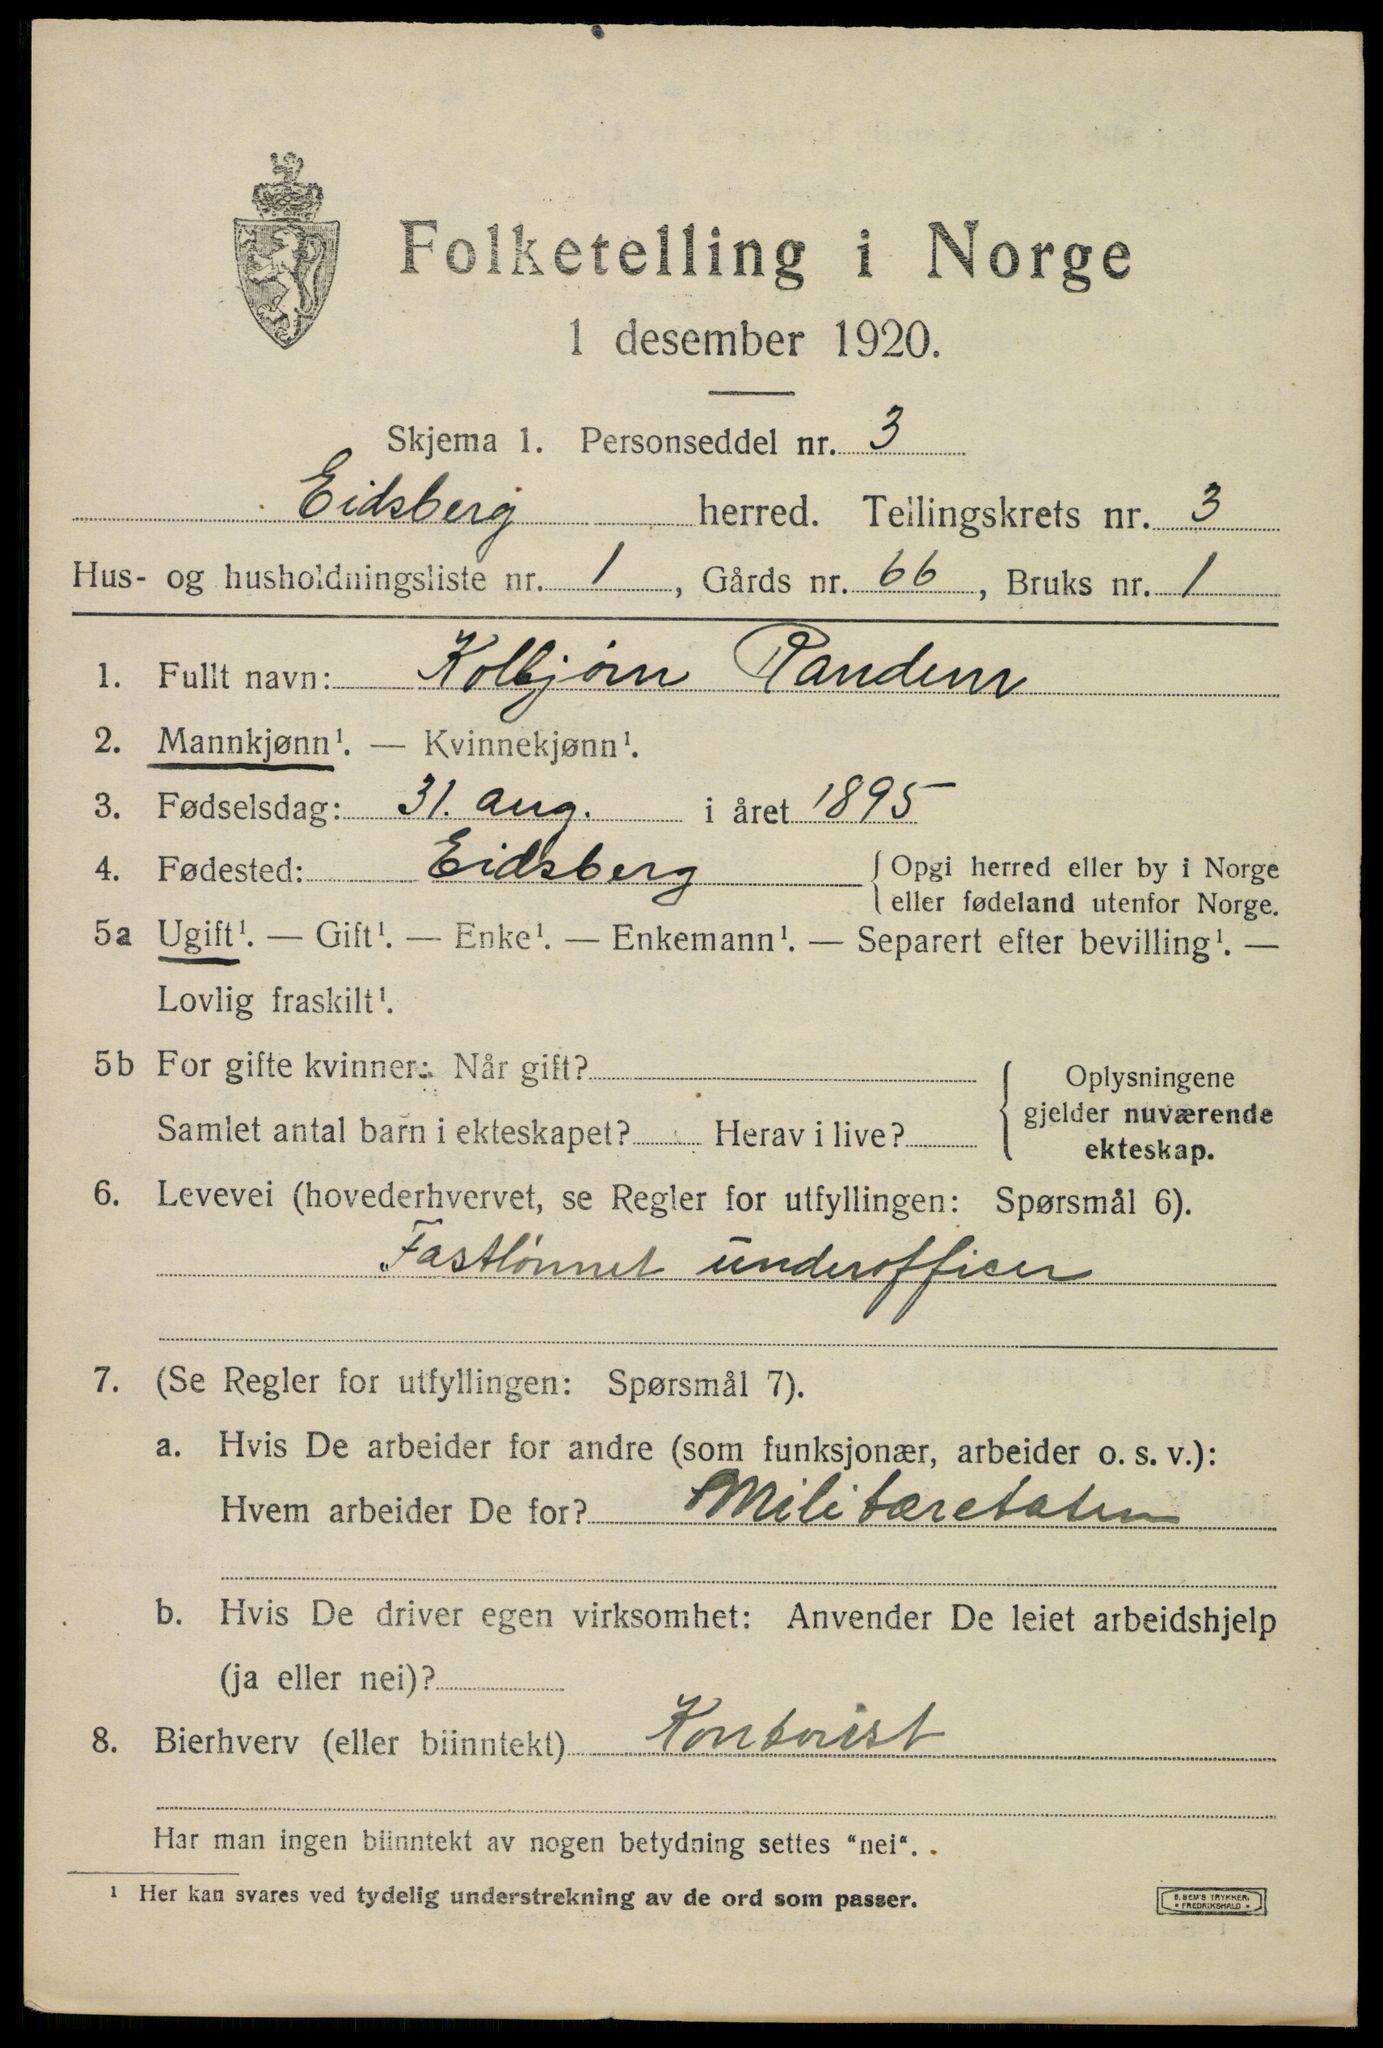 Folketelling i Norge
1 desember 1920.
Skjema 1. Personseddel nr. 3
Eidsberg herred. Tellingskrets nr. 3
Hus- og husholdningsliste nr. 1, Gårds nr. 66, Bruks nr. 1
1. Fullt navn: Kolbjørn Randem
2. Mannkjønn¹. — Kvinnekjønn¹.
3. Fødselsdag: 31. aug. i året 1895
4. Fødested: Eidsberg { Opgi herred eller by i Norge
eller fødeland utenfor Norge.
5a Ugift¹. — Gift¹. — Enke¹. — Enkemann¹. — Separert efter bevilling¹. —
Lovlig fraskilt¹.
5b For gifte kvinner: Når gift?
Samlet antal barn i ekteskapet? Herav i live?
{ Oplysningene
gjelder nuværende
ekteskap.
6. Levevei (hovederhvervet, se Regler for utfyllingen: Spørsmål 6).
Fastlønnet underofficer
7. (Se Regler for utfyllingen: Spørsmål 7).
a. Hvis De arbeider for andre (som funksjonær, arbeider o. s. v.):
Hvem arbeider De for? Militæretaten
b. Hvis De driver egen virksomhet: Anvender De leiet arbeidshjelp
(ja eller nei)?
8. Bierhverv (eller biinntekt) Kontorist
Har man ingen biinntekt av nogen betydning settes “nei“.
¹ Her kan svares ved tydelig understrekning av de ord som passer.
E. SEM'S TRYKKERI,
FREDRIKSHALD